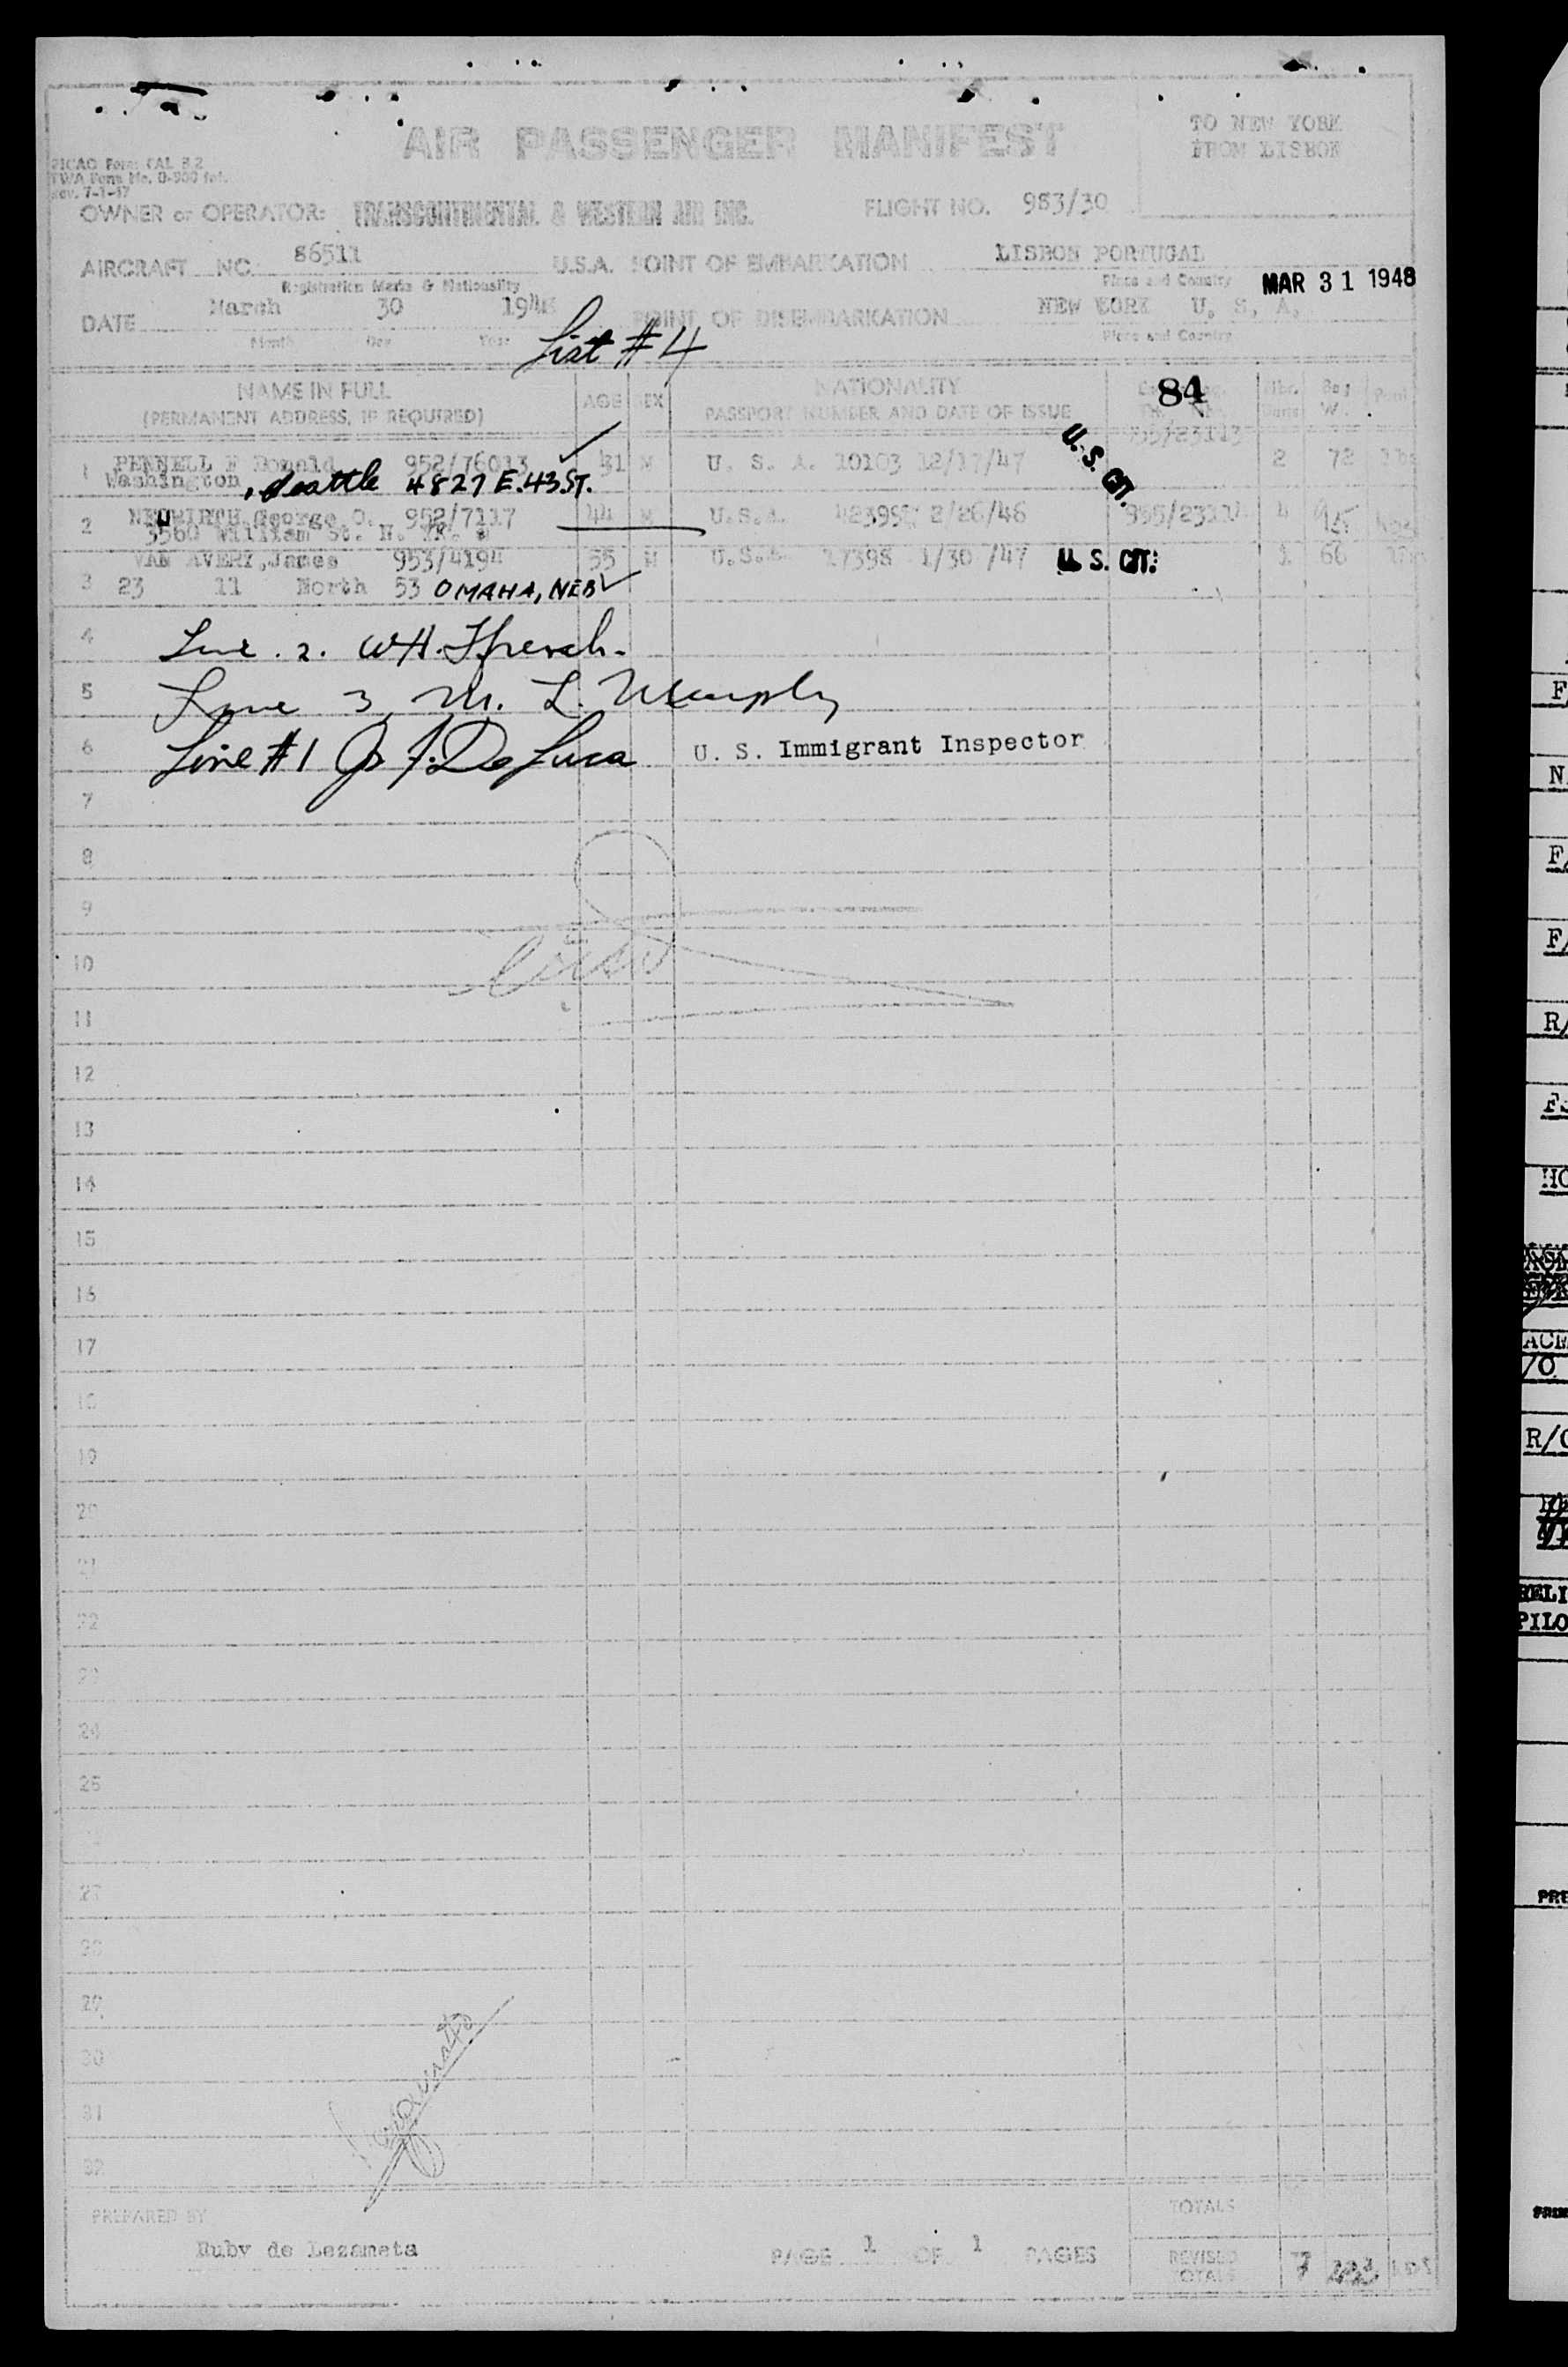 TO NEW YORK
FROM LISBON
AIR PASSENGER MANIFEST
PICAO Form: CAL 8.2
TWA Form No. 0-900 Int.
Rev. 7-1-47
OWNER or OPERATOR: TRANSCONTINENTAL & WESTERN AIR INC. FLIGHT NO. 953/30
AIRCRAFT NO. 86511 U.S.A. POINT OF EMBARKATION LISBON PORTUGAL
Registration Marks & Nationality Place and Country
MAR 31 1948
DATE March 30 1948 POINT OF DISEMBARKATION NEW YORK U. S. A.
Month Day Year Place and Country
List #4
NAME IN FULL AGE SEX NATIONALITY 84 Bag
(PERMANENT ADDRESS, IF REQUIRED) PASSPORT NUMBER AND DATE OF ISSUE
955/23113
1 PENNELL F Donald 952/76013 31 M U. S. A. 10103 12/17/47 U. S. CIT. 2 72
Washington, Seattle 4827 E. 43 ST.
2 NEUKIRCH George O. 952/7117 44 M U.S.A. 2/26/46 4 95
3560 William St. N.
3 VAN AVERY, James 953/4194 55 M U.S.A. 17398 1/30 /47 U. S. CIT. 1 66
23 11 North 53 OMAHA, NEB
4 Line 2. W.H. French.
5 Line 3, M. L. Murphy
6 Line #1 J. DeLuca U. S. Immigrant Inspector
7
8
9
10
11
12
13
14
15
16
17
18
19
20
21
22
23
24
25
27
28
29
30
31
32
PREPARED BY TOTALS
Ruby de Lezameta PAGE 1 OF 1 PAGES REVISED TOTALS 7 233